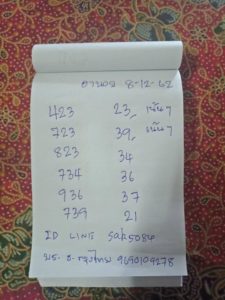 ฮานอย 8-12-62
423 23, เน้นๆ
723 39, เน้นๆ
823 34
734 36
936 37
739 21
ID LINE Sak5084
พร. ธ. กรุงไทย 9690109278